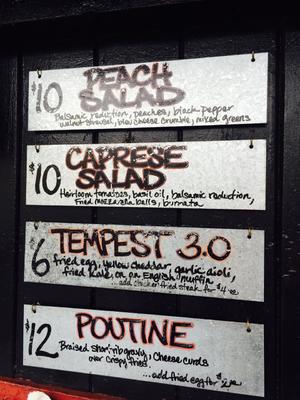 $10 PEACH SALAD
Balsamic reduction, peaches, black pepper
walnut streusel, blew cheese crumble, mixed greens
$10 CAPRESE SALAD
Heirloom tomatoes, basil oil, balsamic reduction,
Fried mozzarella balls, burrata
$6 TEMPEST 3.0
fried egg, yellow cheddar, garlic aioli,
fried kale, on an English muffin
...add chicken fried steak for $4
$12 POUTINE
Braised short rib gravy, cheese curds
over crispy fries.
...add fried egg for $2